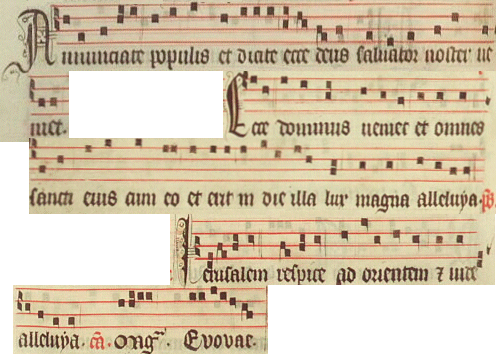 Annunciate populis et dicite ecce deus saluator noster ue
niet.
Ecce dominus ueniet et omnes
sancti eius cum eo et erit in die illa lux magna alleluya. ps.
Ierusalem respice ad orientem 7 uide
alleluya. Euovae.